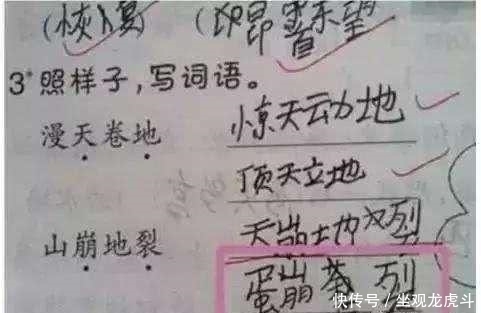 (恢复) (昂首东望
3*照样子,写词语。
漫天卷地 惊天动地
顶天立地
山崩地裂 天崩地裂
蛋崩 列
快传号 / 坐观龙虎斗